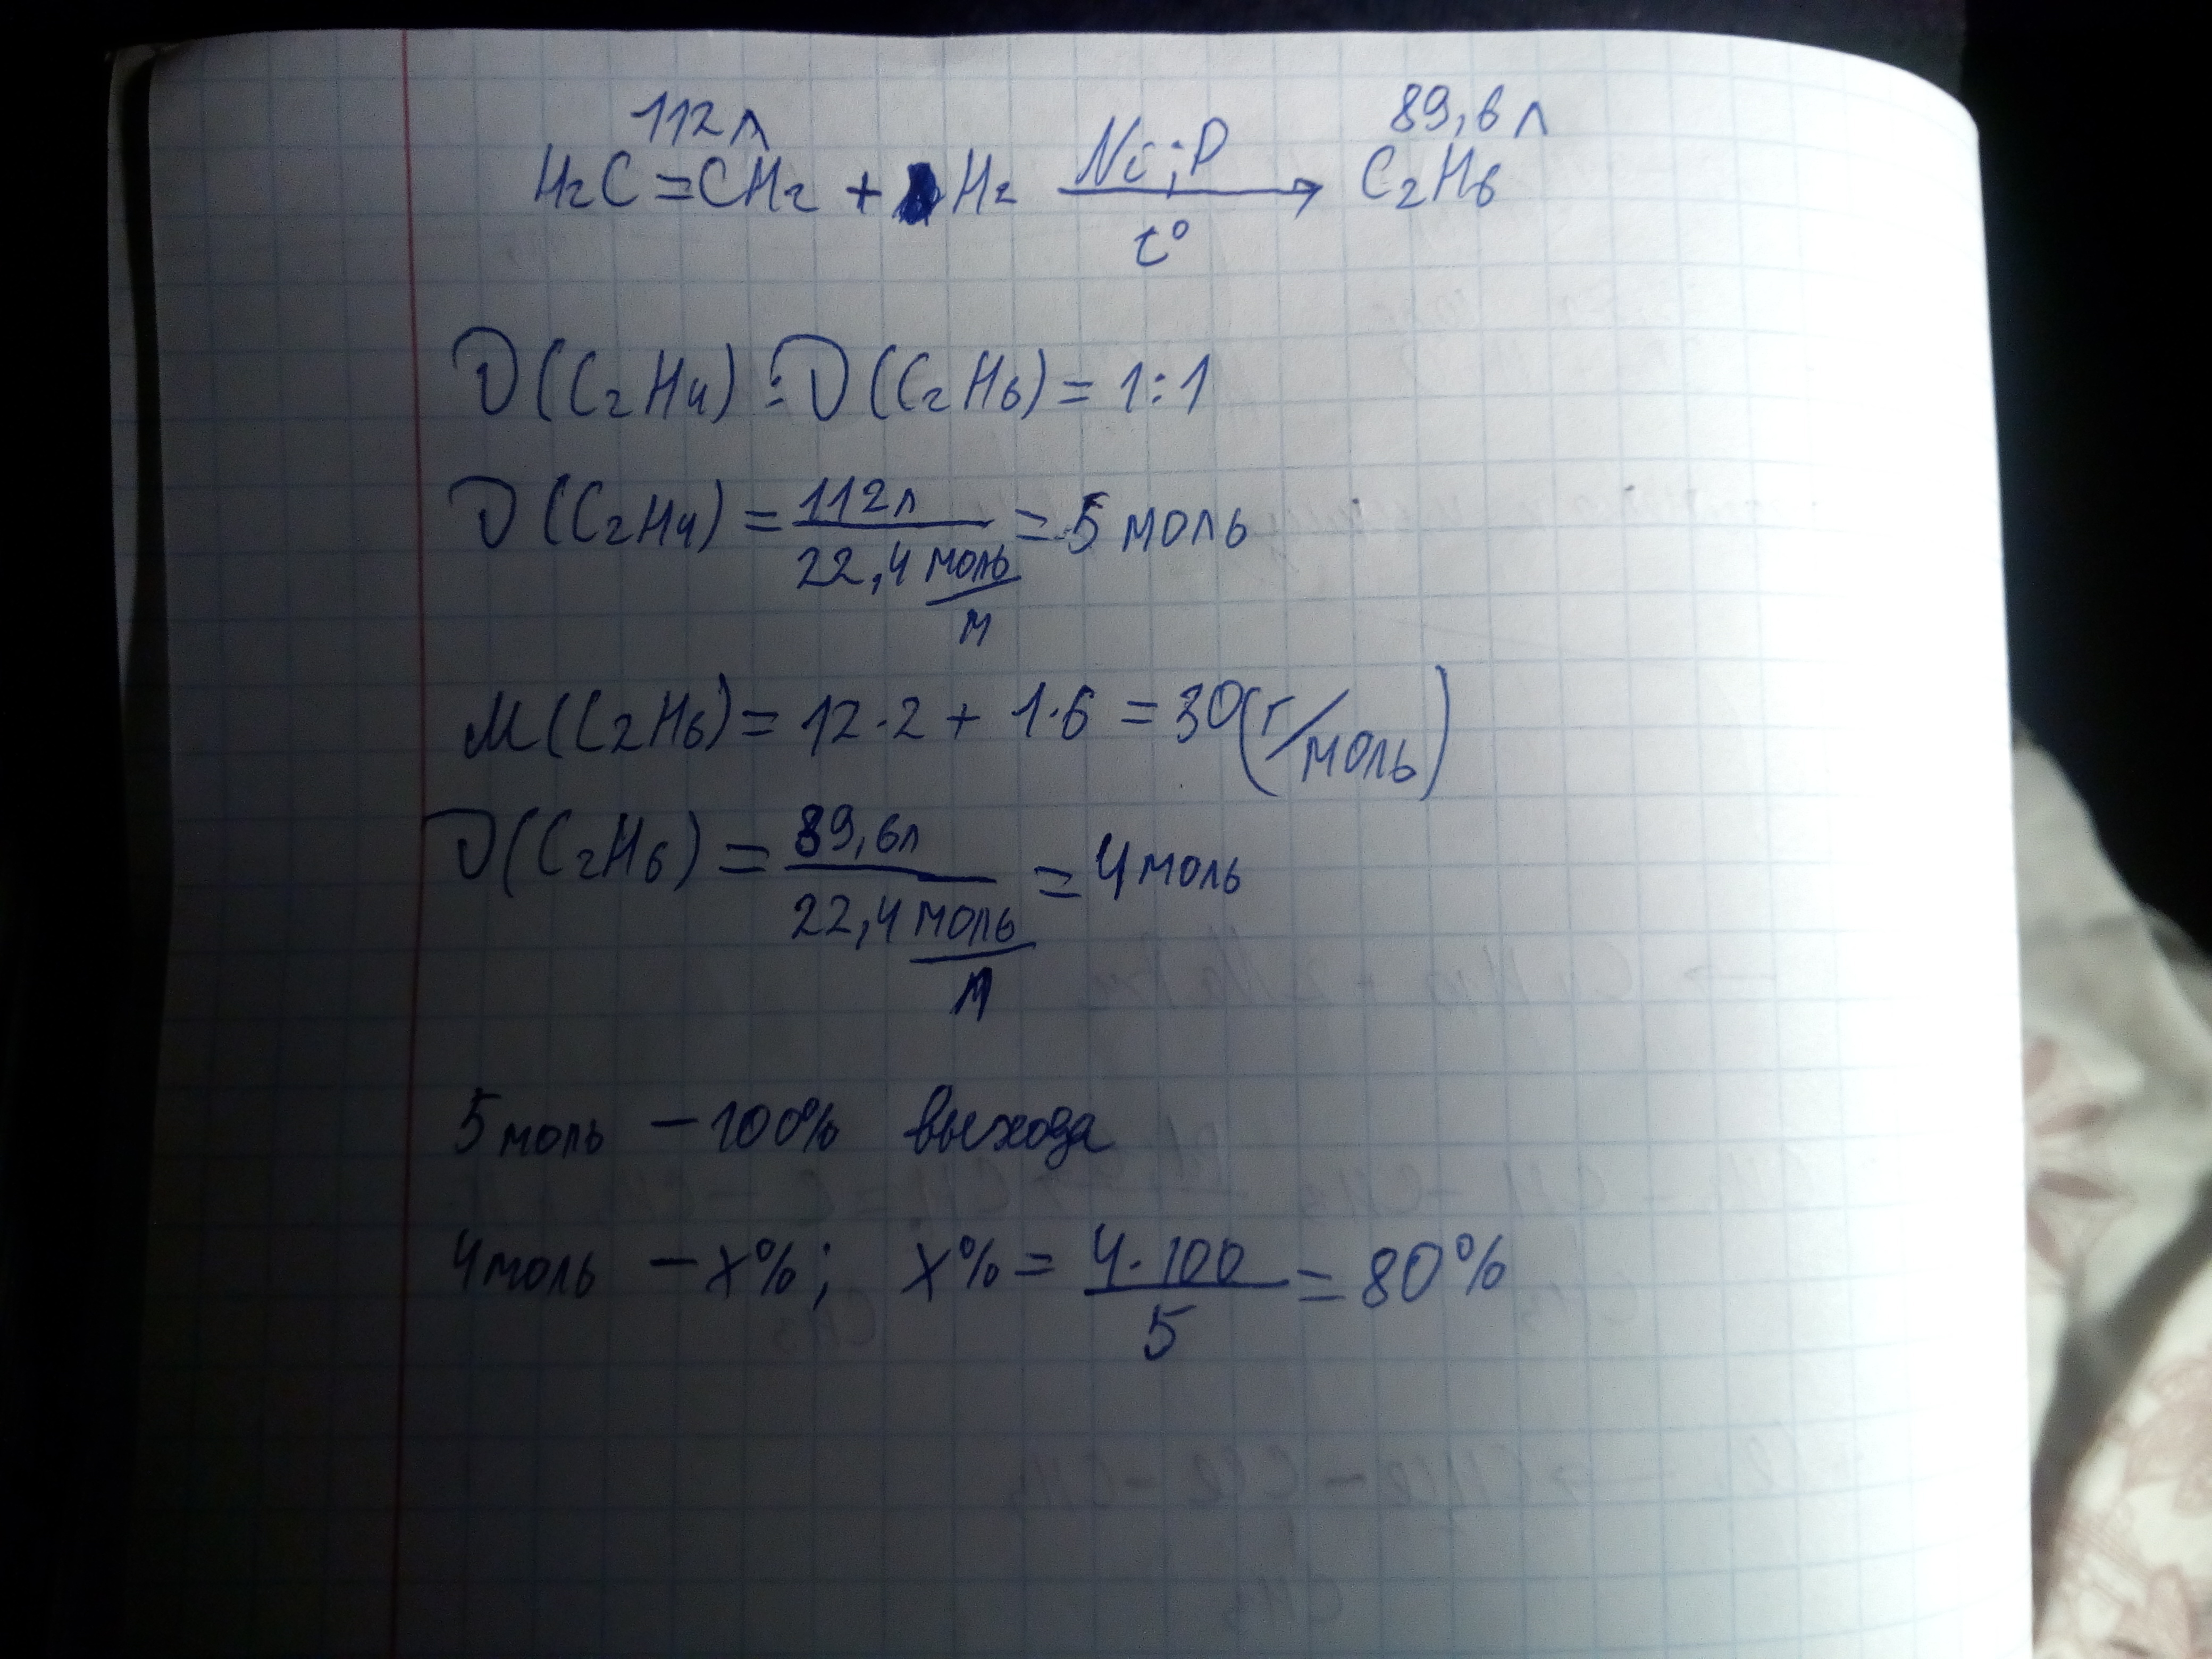 112л 89,6л
H₂C=CH₂ + H₂ Ni;P t° → C₂H₆
ν(C₂H₄):ν(C₂H₆)=1:1
ν(C₂H₄) = 112л / 22,4 моль/м = 5 моль
M(C₂H₆) = 12·2 + 1·6 = 30(г/моль)
ν(C₂H₆) = 89,6л / 22,4 моль/л = 4 моль
5 моль – 100% выхода
4 моль – x%; x% = 4·100 / 5 = 80%